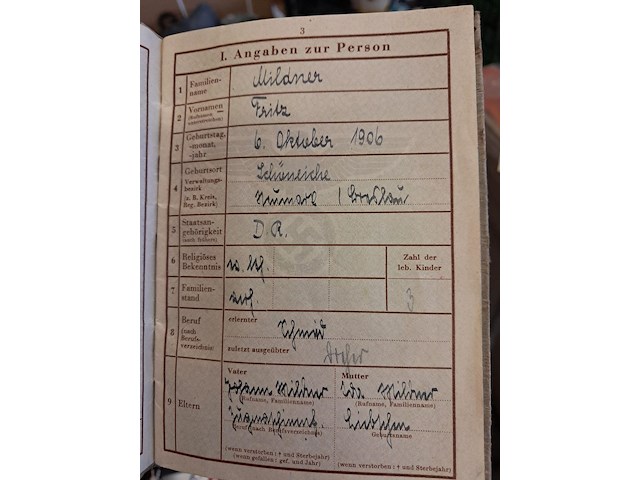 3
I. Angaben zur Person
1 Familien-
name
Mildner
2 Vornamen
(Rufnamen
unterstreichen)
Fritz
3 Geburtstag,
-monat,
-jahr
6. Oktober 1906
4 Geburtsort
Verwaltungs-
bezirk
(z. B. Kreis,
Reg. Bezirk)
Schöneiche
Neumarkt / Breslau
5 Staatsan-
gehörigkeit
(auch frühere)
D.R.
6 Religiöses
Bekenntnis
Zahl der
leb. Kinder
7 Familien-
stand
verh.
3
8 Beruf
(nach
Berufs-
verzeichnis)
erlernter
Schmied
zuletzt ausgeübter
9 Eltern
Vater
Mutter
Johann Mildner
Ida Mildner
(Rufname, Familienname)
(Rufname, Familienname)
(Beruf nach Berufsverzeichnis)
Geburtsname
(wenn verstorben: † und Sterbejahr)
(wenn gefallen: gef. und Jahr)
(wenn verstorben: † und Sterbejahr)